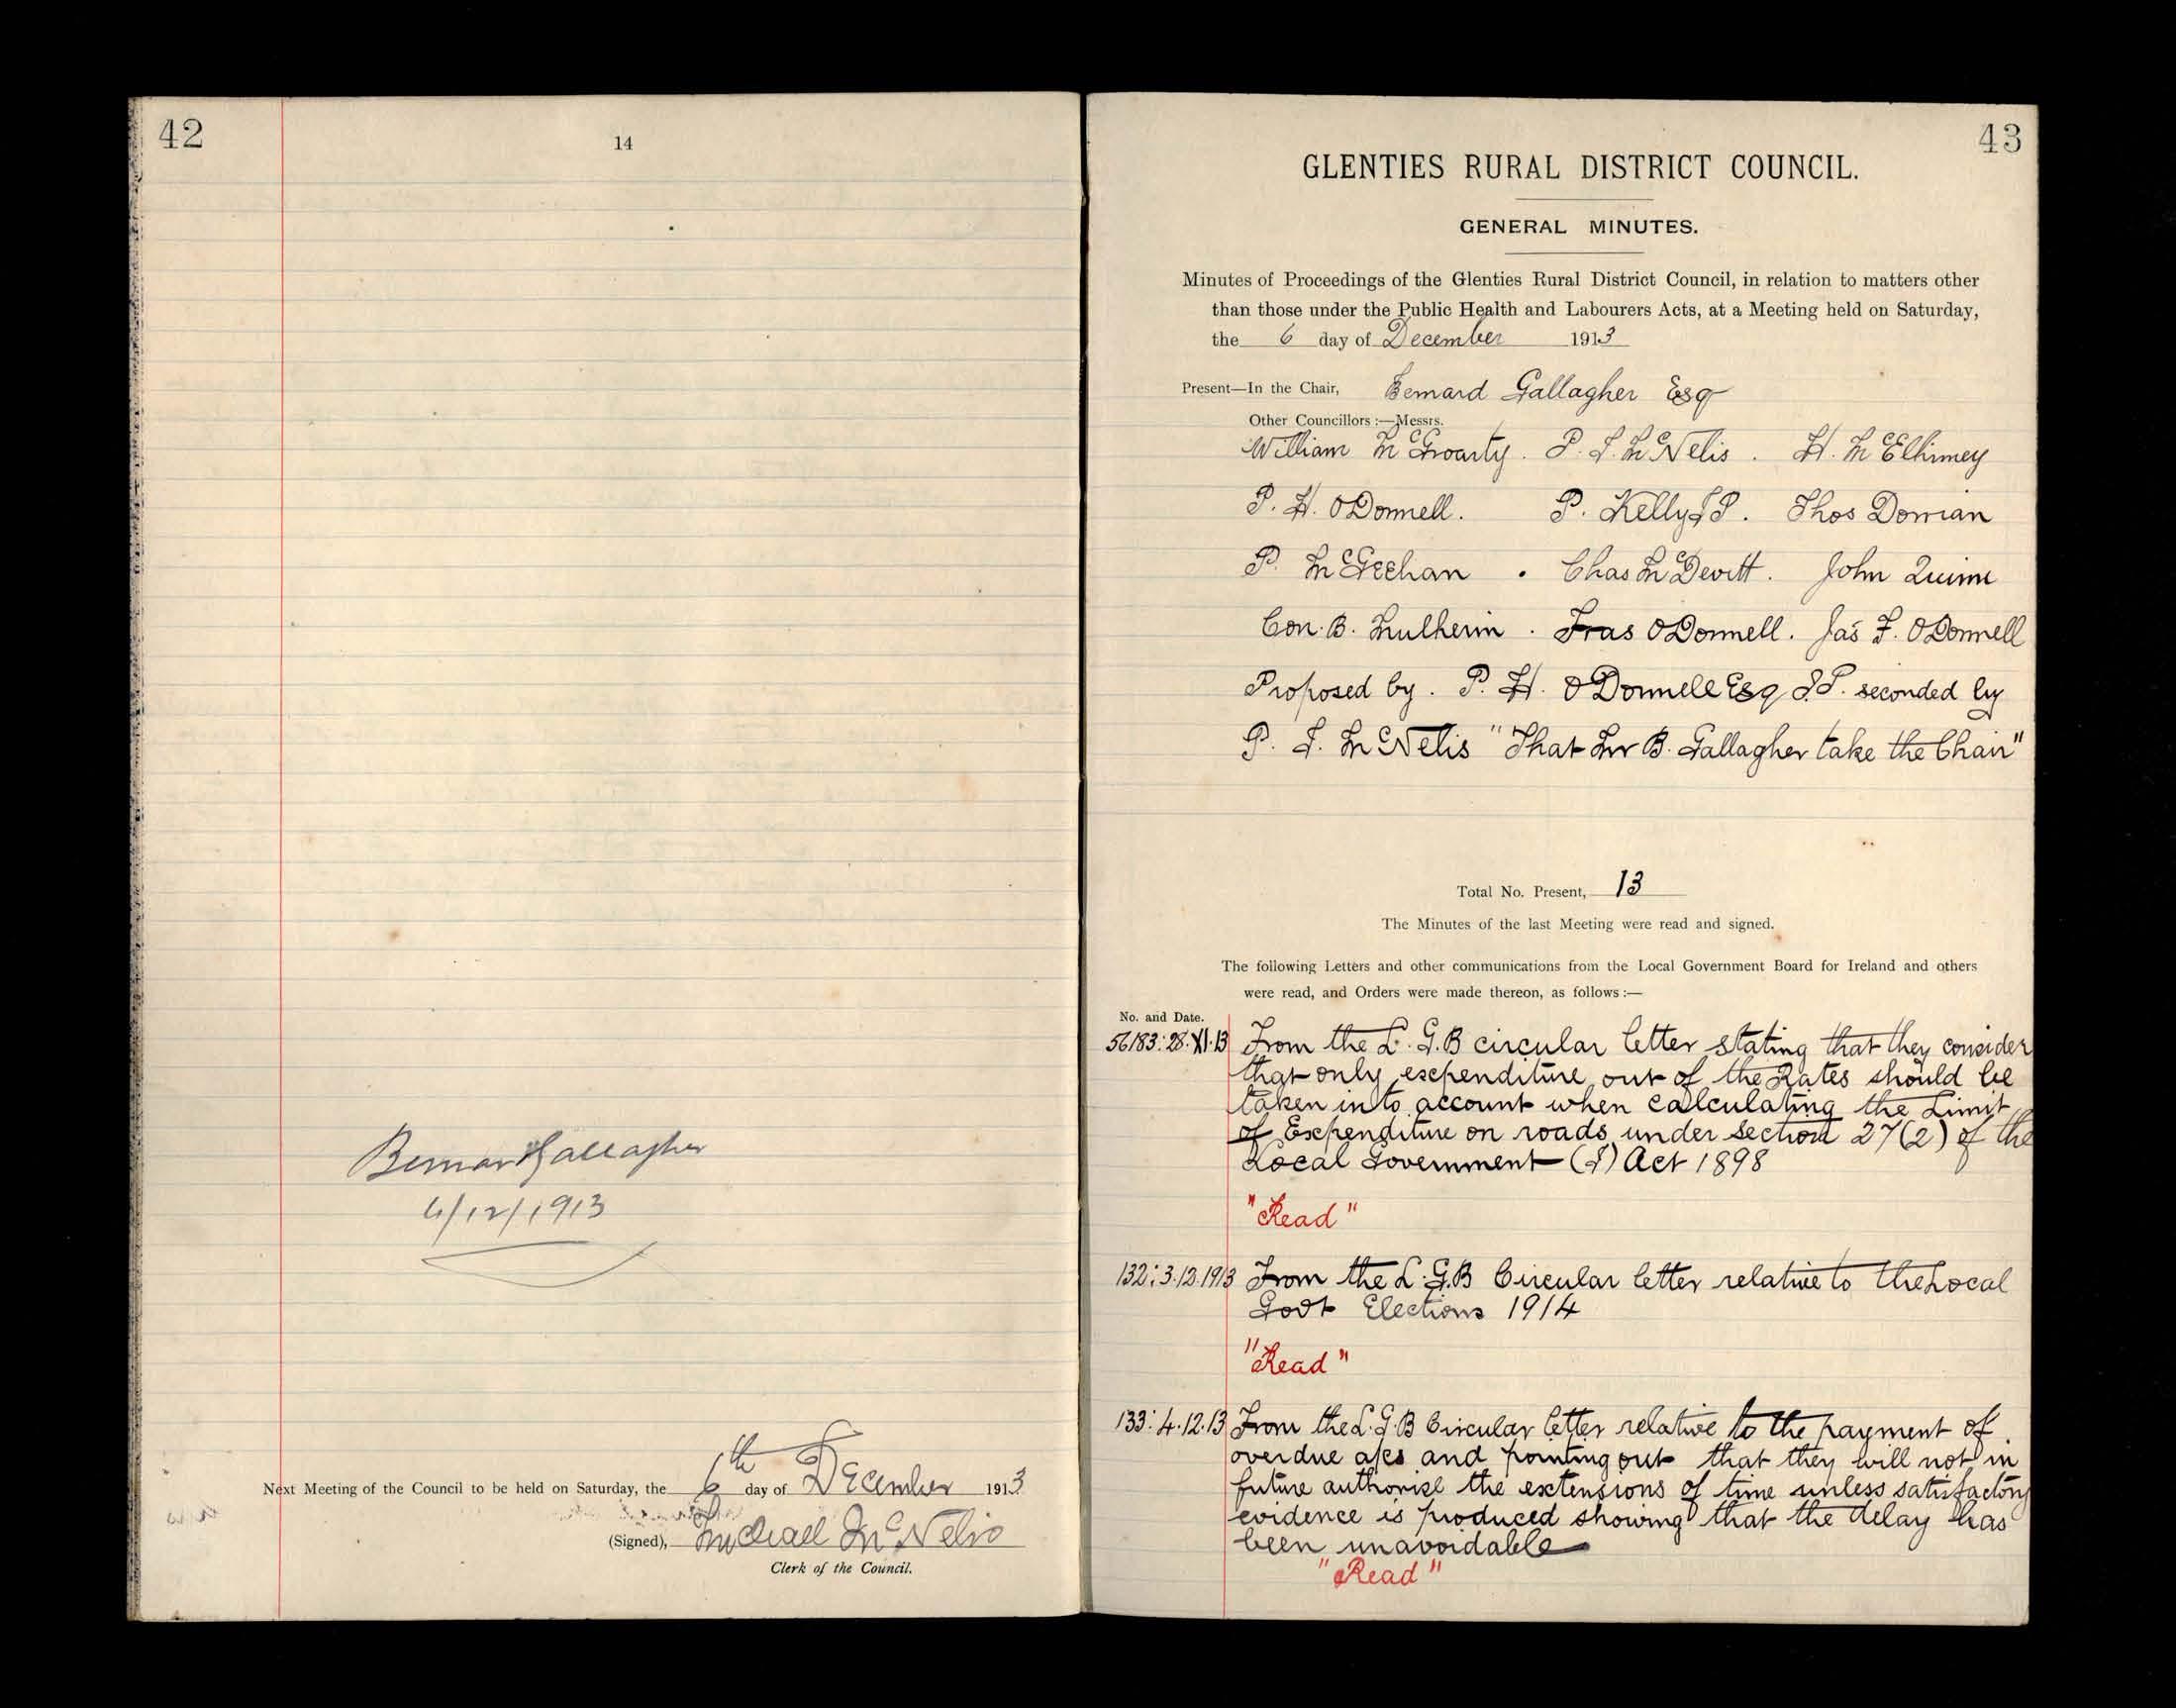 42
14
Bernard Gallagher
6/12/1913
Next Meeting of the Council to be held on Saturday, the 6th day of December 1913
(Signed), Michael McNelis
Clerk of the Council.
43
GLENTIES RURAL DISTRICT COUNCIL.
GENERAL MINUTES.
Minutes of Proceedings of the Glenties Rural District Council, in relation to matters other
than those under the Public Health and Labourers Acts, at a Meeting held on Saturday,
the 6 day of December 1913
Present—In the Chair, Bernard Gallagher Esq
Other Councillors:—Messrs.
William McGroarty. P. J. McNelis. H. McElhinney
P. H. ODonnell. P. Kelly JP. Thos Dornan
P. McGeehan. Chas McDevitt. John Quinn
Con. B. Mulhern. Fras ODonnell. Jas F. ODonnell
Proposed by. P. H. ODonnell Esq J.P. seconded by
P. J. McNelis "That Mr B. Gallagher take the Chair"
Total No. Present, 13
The Minutes of the last Meeting were read and signed.
The following Letters and other communications from the Local Government Board for Ireland and others
were read, and Orders were made thereon, as follows:—
No. and Date.
56183: 28.XI.13 From the L.G.B circular letter stating that they consider
that only expenditure out of the Rates should be
taken into account when calculating the Limit
of Expenditure on roads under section 27(2) of the
Local Government (I) Act 1898
"Read"
132: 3.12.1913 From the L.G.B Circular letter relative to the Local
Govt Elections 1914
"Read"
133: 4.12.13 From the L.G.B Circular letter relative to the payment of
overdue a/cs and pointing out that they will not in
future authorise the extensions of time unless satisfactory
evidence is produced showing that the delay has
been unavoidable
"Read"